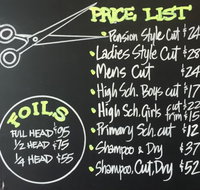 PRICE LIST
Pension Style Cut $24
Ladies Style Cut $28
Mens Cut $24
High Sch. Boys cut $17
High Sch. Girls cut $22 trim $15
Primary Sch. cut $12
Shampoo & Dry $37
Shampoo, Cut, Dry $52
FOILS
FULL HEAD $95
1/2 HEAD $75
1/4 HEAD $55